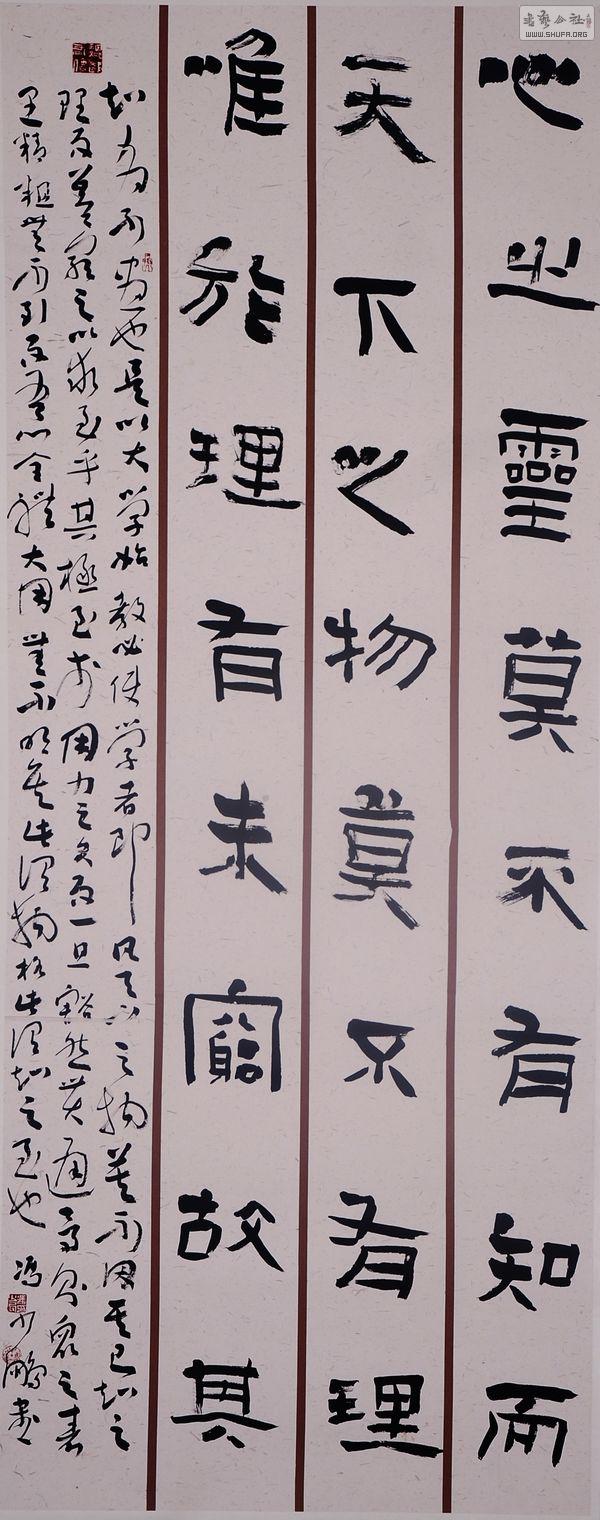 心之靈莫不有知而
天下之物莫不有理
唯於理有未窮故其
知有不盡也是以大学始教必使学者即凡天下之物莫不因其已知之
理而益窮之以求至乎其極至於用力之久而一旦豁然貫通焉則衆之表
里精粗無不到而吾心全體大用無不明矣此謂物格此謂知之至也 馮少鵬書
書藝公社
WWW.SHUFA.ORG